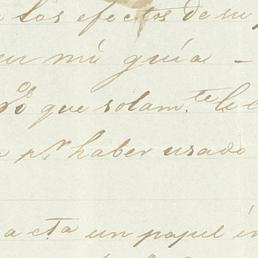 los efectos de su
mi guía -
que solam.te le
p.r haber usado
acta un papel